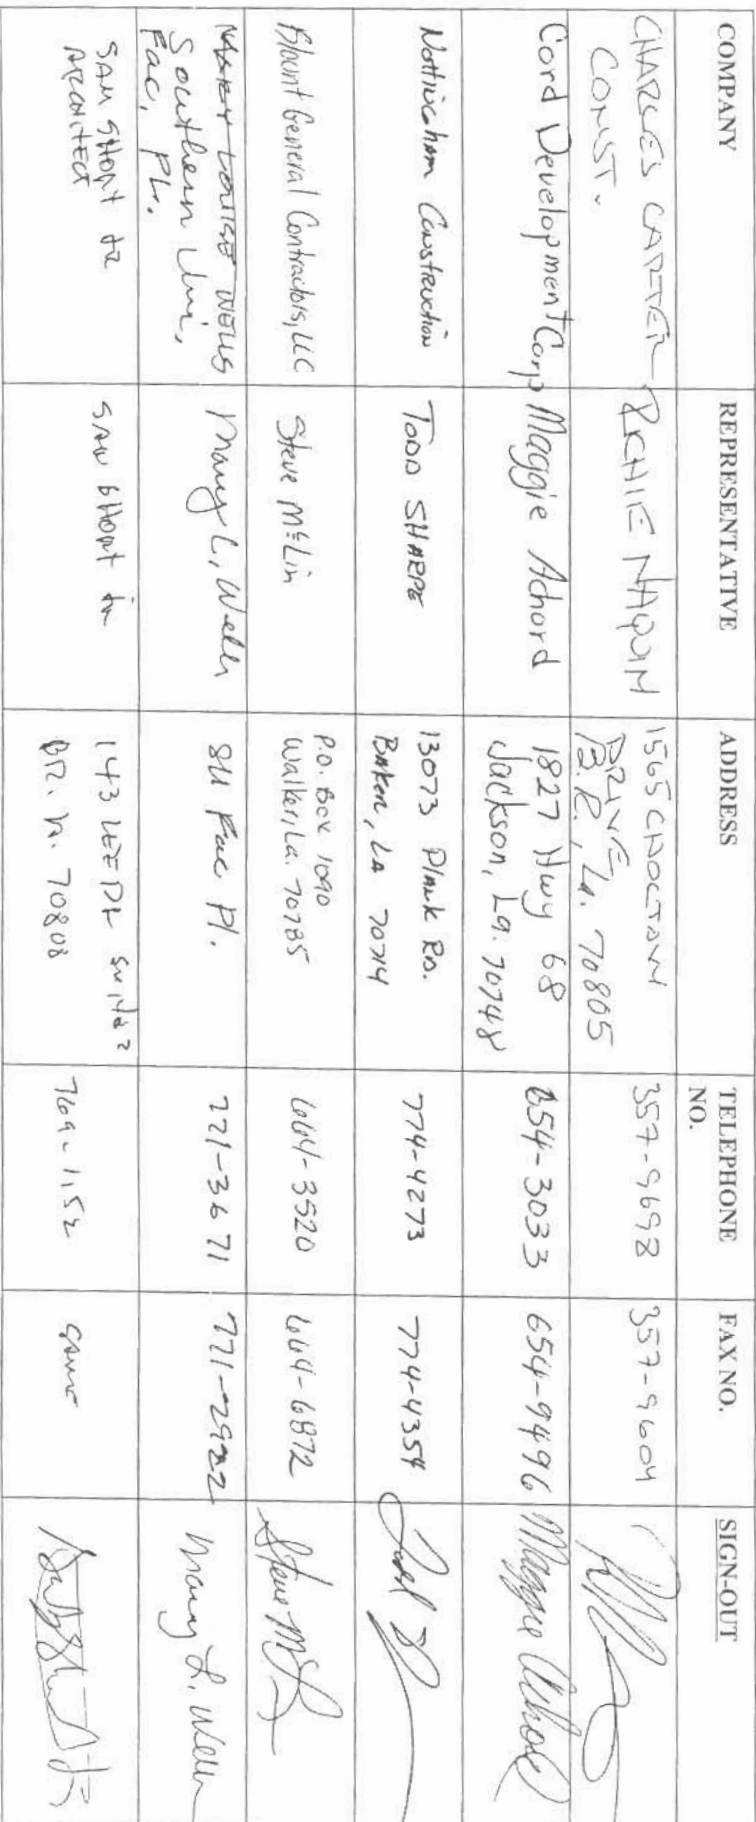 COMPANY
REPRESENTATIVE
ADDRESS
TELEPHONE
NO.
FAX NO.
SIGN-OUT
CHARLES CARTER
CONST.
RICHIE NAQUIN
1565 CHOCTAW
DRIVE
B.R., La. 70805
357-9698
357-9604
Cord Development Corp
Maggie Achord
1827 Hwy 68
Jackson, La. 70748
654-3033
654-9496
Maggie Achord
Nottingham Construction
TODD SHARPE
13073 Plank Rd.
Baker, LA 70714
774-4273
774-4354
Blount General Contractors, LLC
Steve McLin
P.O. Box 1090
Walker, La. 70785
664-3520
664-6872
Steve McL
MARY LOUISE WELLS
Southern Univ,
Fac, Pl.
Mary L. Wells
SU Fac Pl.
771-3671
771-2922
Mary L. Wells
SAM SHORT JR
ARCHITECT
SAM SHORT JR
143 LEE DR SUITE 2
BR. LA. 70808
769-1152
same